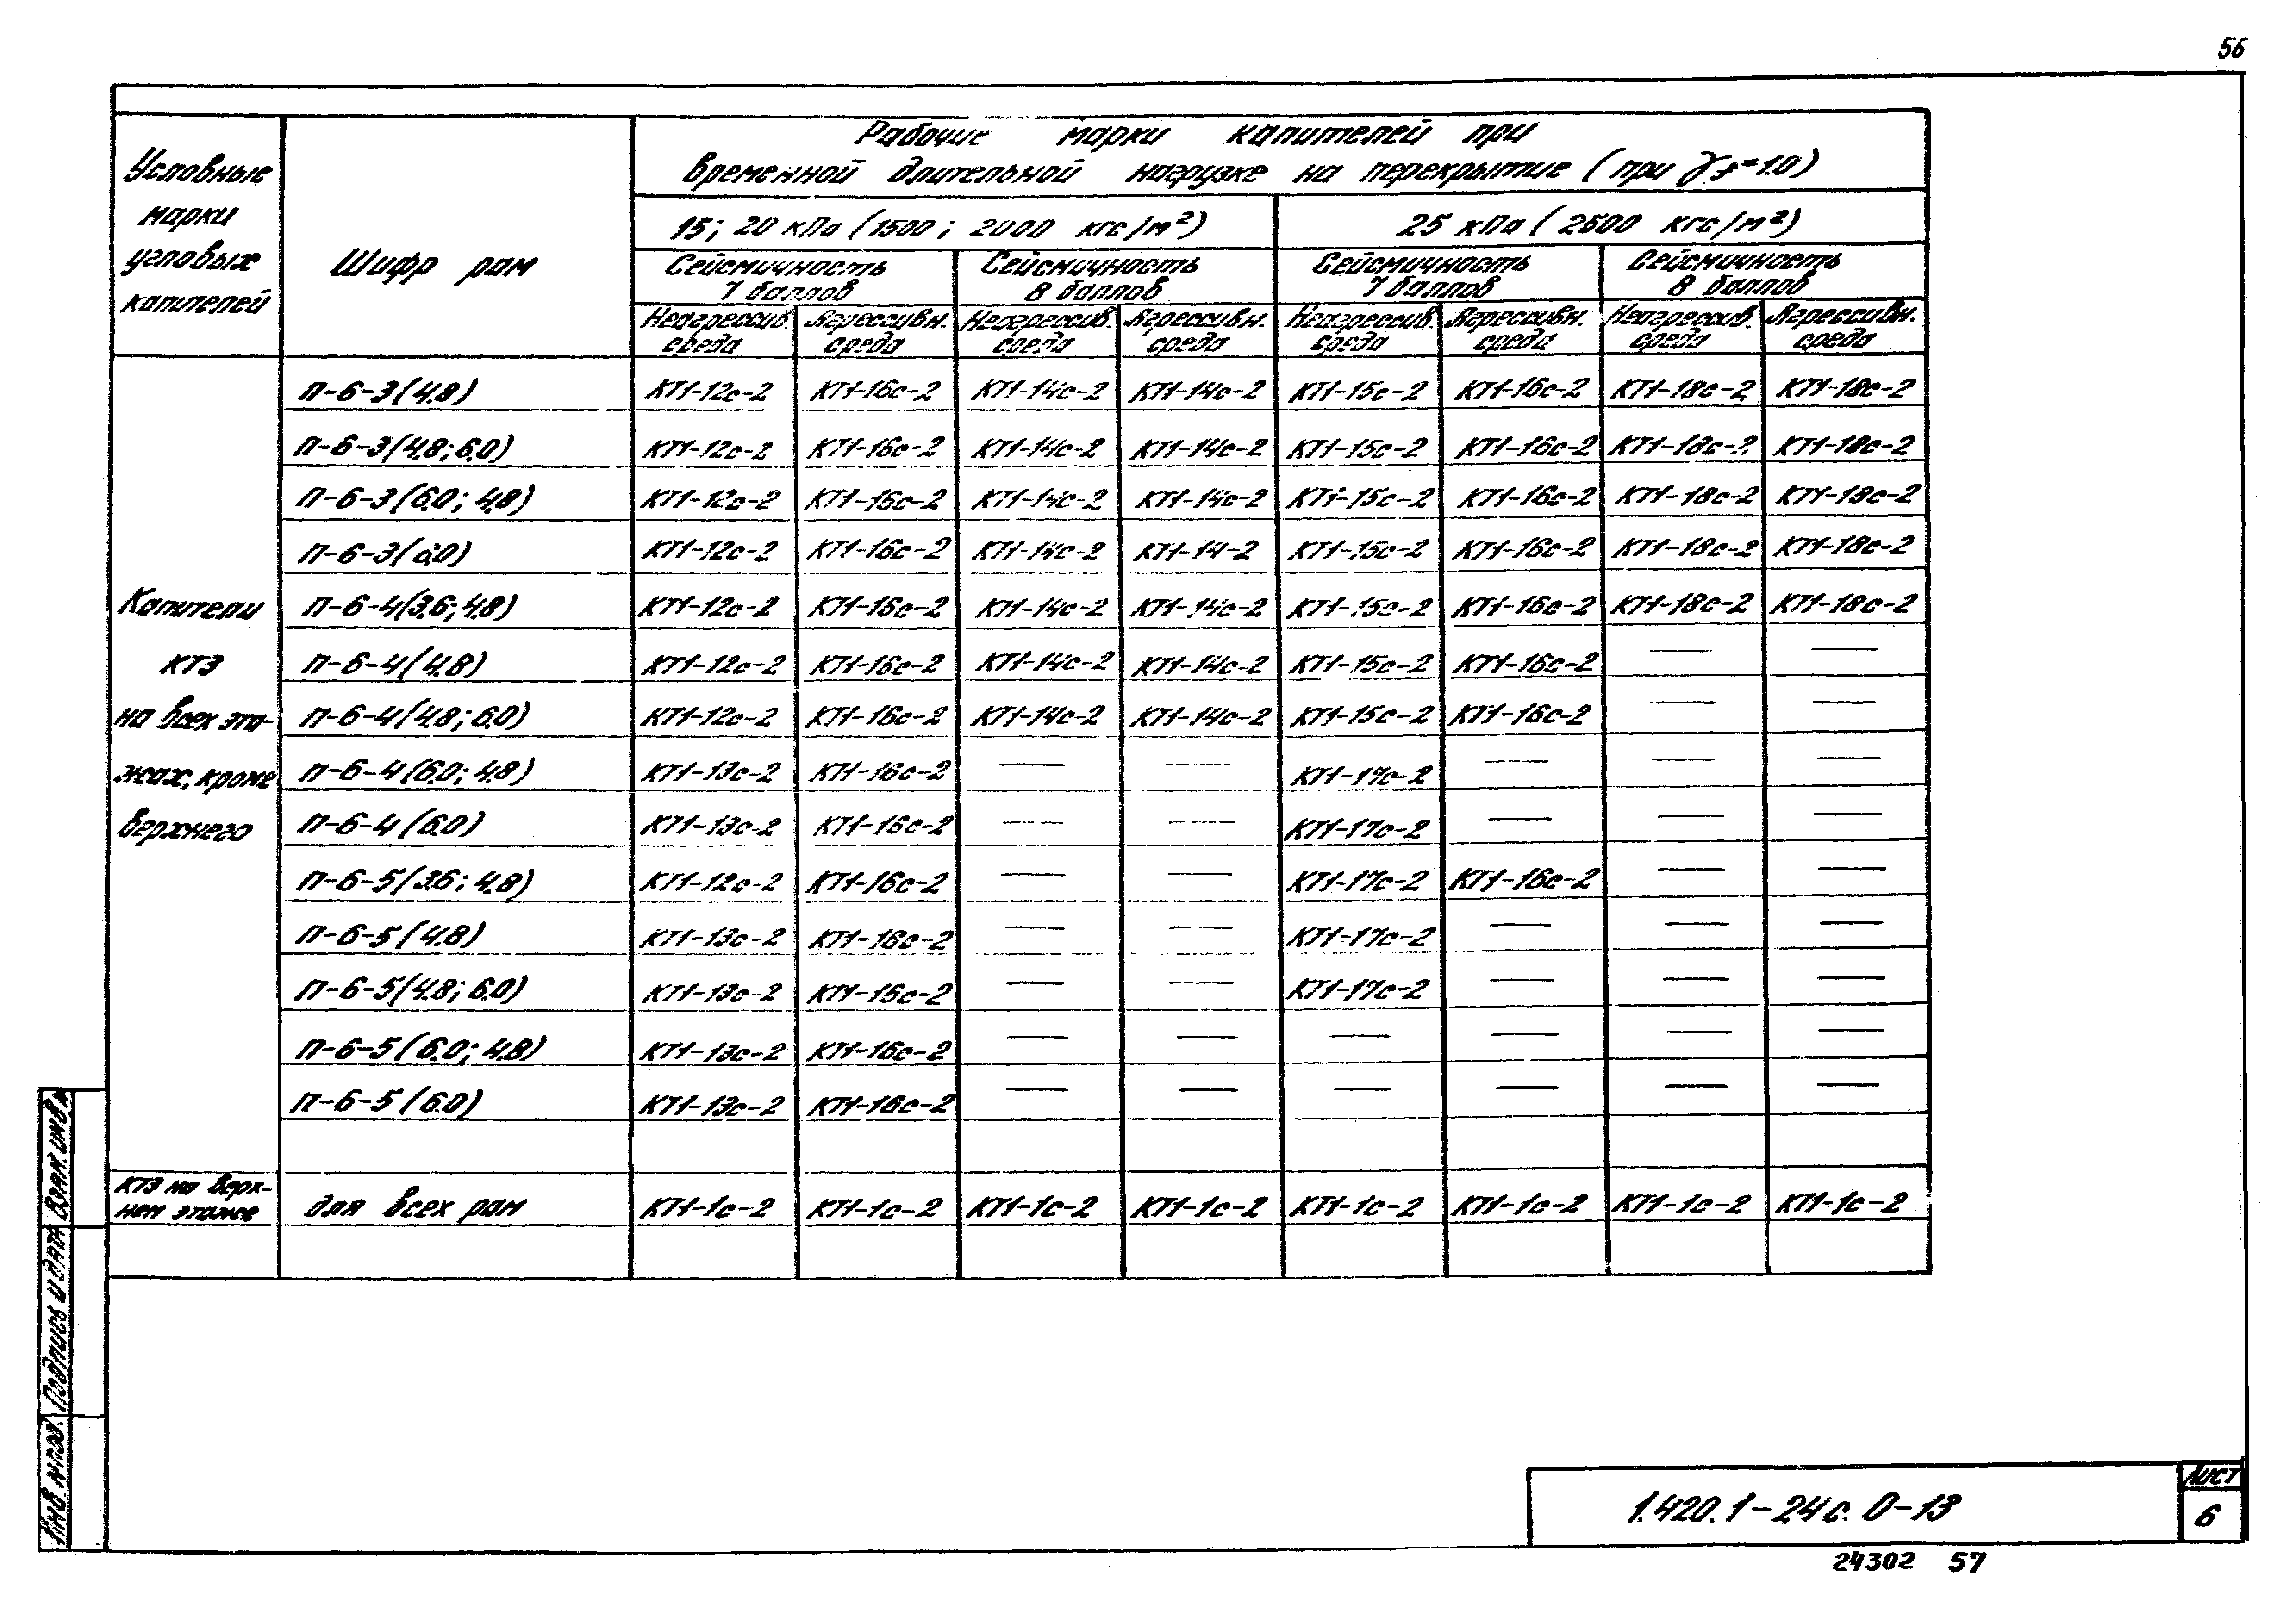 56
Условные марки угловых капителей
Шифр рам
Рабочие марки капителей при
временной длительной нагрузке на перекрытие (при γf=1.0)
15; 20 кПа (1500; 2000 кгс/м²)
25 кПа (2500 кгс/м²)
Сейсмичность 7 баллов
Сейсмичность 8 баллов
Сейсмичность 7 баллов
Сейсмичность 8 баллов
Неагрессив. среда
Агрессивн. среда
Неагрессив. среда
Агрессивн. среда
Неагрессив. среда
Агрессивн. среда
Неагрессив. среда
Агрессивн. среда
Капители КТ3 на всех этажах, кроме верхнего
П-6-3(4.8) КТ1-12с-2 КТ1-16с-2 КТ1-14с-2 КТ1-14с-2 КТ1-15с-2 КТ1-16с-2 КТ1-18с-2 КТ1-18с-2
П-6-3(4.8; 6.0) КТ1-12с-2 КТ1-16с-2 КТ1-14с-2 КТ1-14с-2 КТ1-15с-2 КТ1-16с-2 КТ1-18с-2 КТ1-18с-2
П-6-3(6.0; 4.8) КТ1-12с-2 КТ1-16с-2 КТ1-14с-2 КТ1-14с-2 КТ1-15с-2 КТ1-16с-2 КТ1-18с-2 КТ1-18с-2
П-6-3(6.0) КТ1-12с-2 КТ1-16с-2 КТ1-14с-2 КТ1-14-2 КТ1-15с-2 КТ1-16с-2 КТ1-18с-2 КТ1-18с-2
П-6-4(3.6; 4.8) КТ1-12с-2 КТ1-16с-2 КТ1-14с-2 КТ1-14с-2 КТ1-15с-2 КТ1-16с-2 КТ1-18с-2 КТ1-18с-2
П-6-4(4.8) КТ1-12с-2 КТ1-16с-2 КТ1-14с-2 КТ1-14с-2 КТ1-15с-2 КТ1-16с-2 — —
П-6-4(4.8; 6.0) КТ1-12с-2 КТ1-16с-2 КТ1-14с-2 КТ1-14с-2 КТ1-15с-2 КТ1-16с-2 — —
П-6-4(6.0; 4.8) КТ1-13с-2 КТ1-16с-2 — — КТ1-17с-2 — — —
П-6-4(6.0) КТ1-13с-2 КТ1-16с-2 — — КТ1-17с-2 — — —
П-6-5(3.6; 4.8) КТ1-12с-2 КТ1-16с-2 — — КТ1-17с-2 КТ1-16с-2 — —
П-6-5(4.8) КТ1-13с-2 КТ1-16с-2 — — КТ1-17с-2 — — —
П-6-5(4.8; 6.0) КТ1-13с-2 КТ1-16с-2 — — КТ1-17с-2 — — —
П-6-5(6.0; 4.8) КТ1-13с-2 КТ1-16с-2 — — — — — —
П-6-5(6.0) КТ1-13с-2 КТ1-16с-2 — — — — — —
КТ3 на верхнем этаже
для всех рам КТ1-1с-2 КТ1-1с-2 КТ1-1с-2 КТ1-1с-2 КТ1-1с-2 КТ1-1с-2 КТ1-1с-2 КТ1-1с-2
Инв. № подл. Подпись и дата Взам. инв. №
1.420.1-24с. 0-13
Лист
6
24302 57